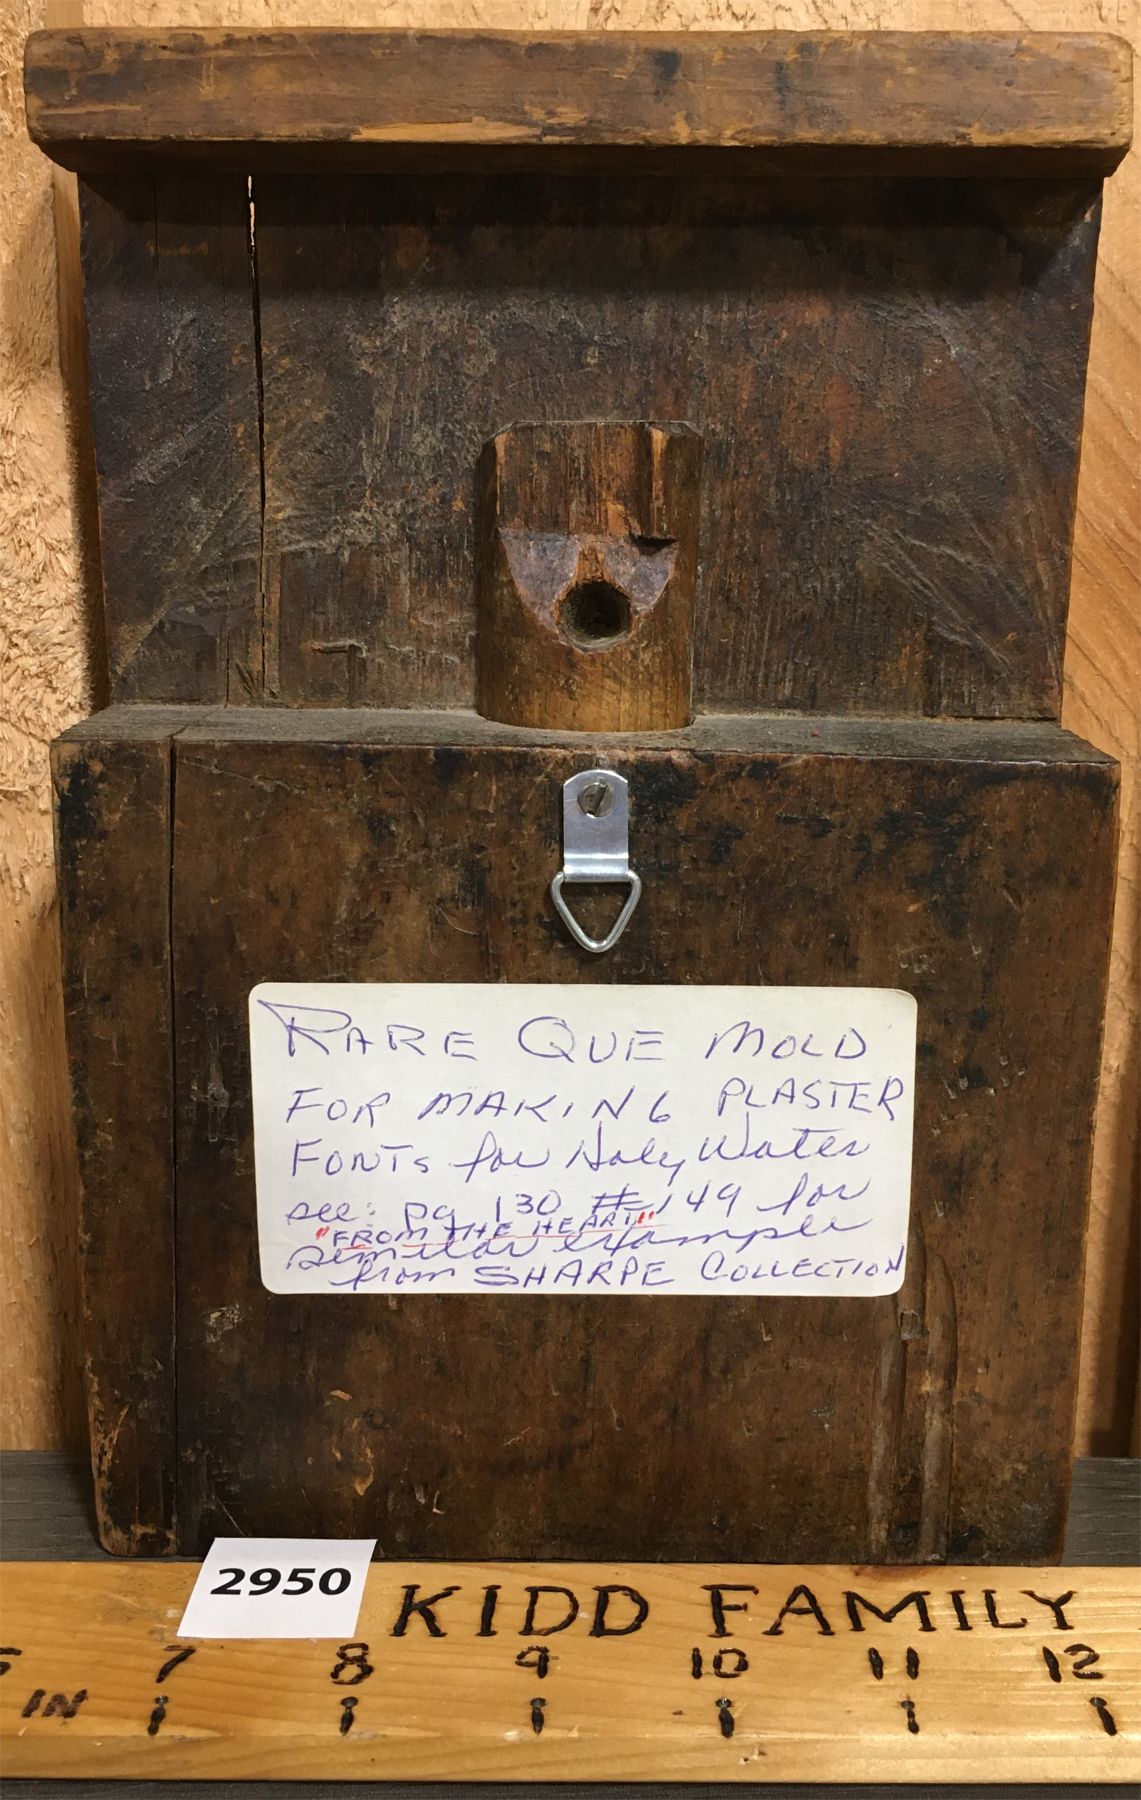 RARE QUE MOLD
FOR MAKING PLASTER
FONTS for Holy Water
see: pg 130 #149 for
"FROM THE HEART"
similar example
from SHARPE COLLECTION
2950
KIDD FAMILY
7 8 9 10 11 12
IN